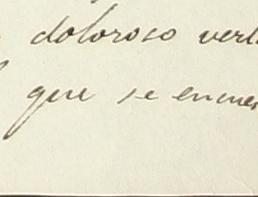 doloroso verl
que se encue